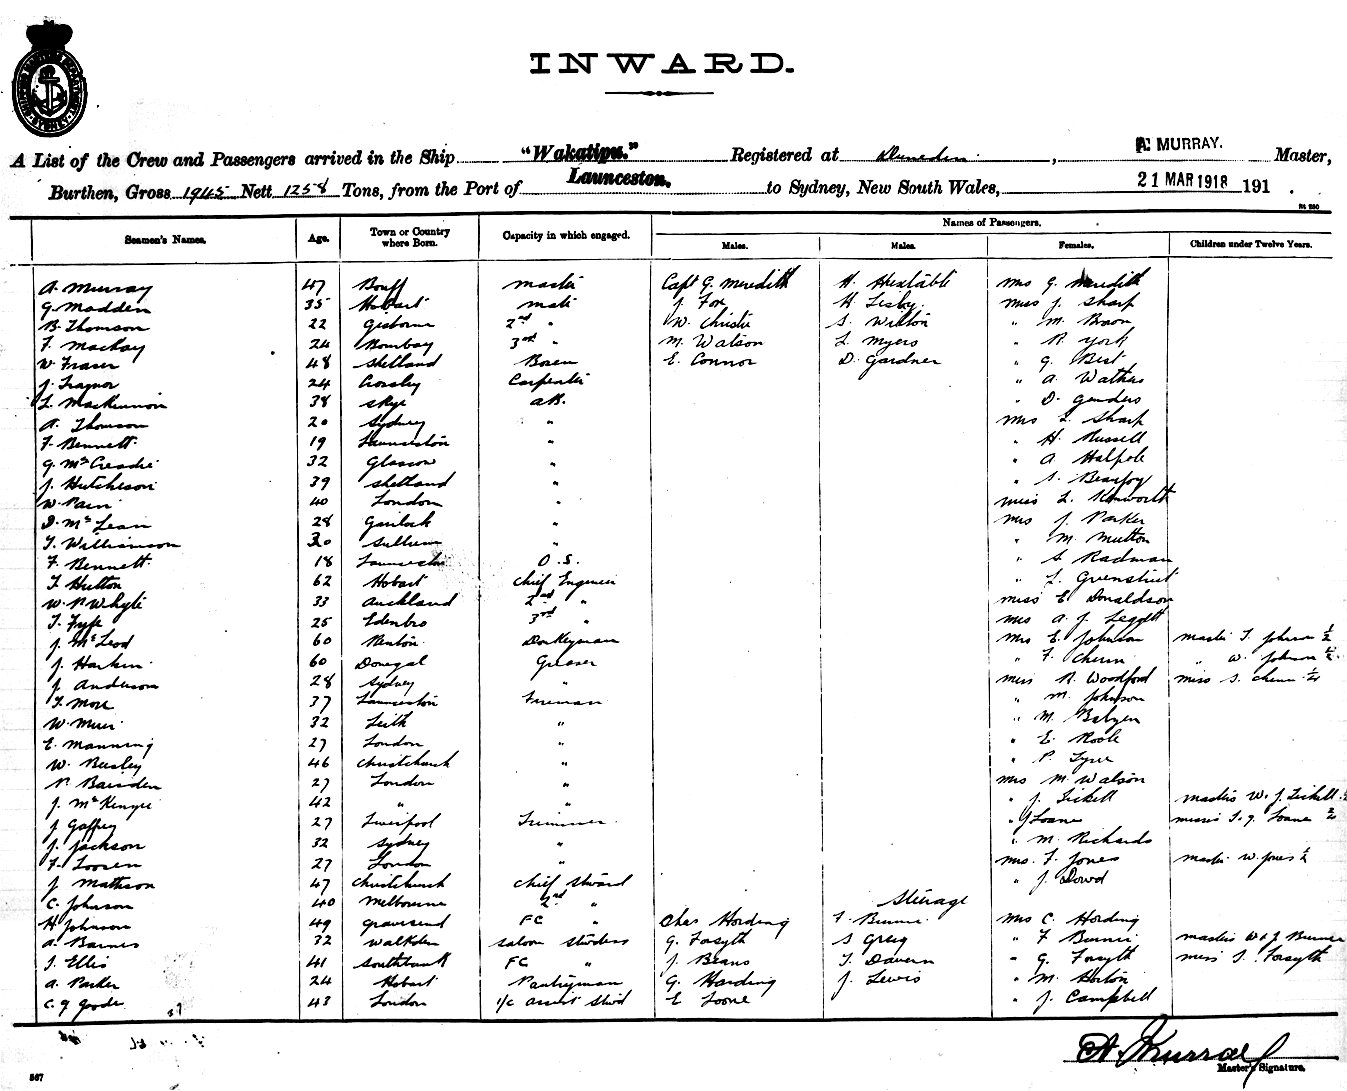 INWARD.
A List of the Crew and Passengers arrived in the Ship "Wakatipu." Registered at Dunedin, A. MURRAY. Master,
Burthen, Gross 1945 Nett 1258 Tons, from the Port of Launceston, to Sydney, New South Wales, 21 MAR 1918 191 .
Names of Passengers.
Seamen's Names. Age. Town or Country where Born. Capacity in which engaged. Males. Males. Females. Children under Twelve Years.
A. Murray 47 Banff master Capt G. Meredith H. Huxtable Mrs G. Meredith
G. Madden 35 Hobart mate J. Fox H. Lesby Miss J. Sharp
B. Thomson 22 Gisborne 2nd " W. Christie S. Wilton " M. Bron
F. Mackay 24 Bombay 3rd " M. Watson L. Myers " R. York
W. Fraser 48 Shetland Bosen E. Connor D. Gardner " G. Best
J. Traynor 24 Crosby Carpenter " A. Wathers
L. MacKinnon 38 Skye AB. " D. Genders
A. Thomson 20 Sydney " Mrs L. Sharp
F. Bennett 19 Launceston " " H. Russell
G. McCreadie 32 Glasgow " " A. Halpole
J. Hutcheson 39 Shetland " "
W. Pain 40 London " Miss L. Kenworth
D. McLean 28 Gairloch " Mrs J. Parker
T. Williamson 30 Sullum " " M. Mutton
F. Bennett 18 Launceston O.S. " S. Radman
T. Hutton 62 Hobart Chief Engineer " L.
W. P. Whyte 33 Auckland 2nd " Miss E. Donaldson
T. Fyfe 25 Edenbro 3rd " Mrs A. J. Leggett
J. McLeod 60 Renton Donkeyman Mrs E. Johnson Master T. Johnson ½
J. Harkin 60 Donegal Greaser " F. Cherin " W. Johnson ½
J. Anderson 28 Sydney " Miss R. Woodford Miss S. Cherin
T. More 37 Launceston Fireman " M. Johnson
W. Muir 32 Leith " " M.
E. Manning 27 London " " E. Roole
W. Busley 46 Christchurch " " P.
P. Baisden 27 London " Mrs M. Watson
J. McKenzie 42 " " " J. Tickell Masters W. J. Tickell
J. Gaffney 27 Liverpool Trimmer " J. Loane Misses Loane
J. Jackson 32 Sydney " " M. Richards
F. Looren 27 London " Mrs. F. Jones Master W. Jones ½
J. Mathison 47 Christchurch Chief Steward " J. Dowd
C. Johnson 40 Melbourne 2nd "
Steerage
H. Johnson 49 Gravesend FC " Chas Harding F. Binnie Mrs C. Harding
A. Barnes 32 Walkden Saloon Stewdess G. Forsyth S Greig " F Binnie Masters W & J Binnie
J. Ellis 41 Southbank FC " J. Beans T. Davern " G. Forsyth Miss Forsyth
A. Parker 24 Hobart Pantryman G. Harding J. Lewis " M. Horton
C. G. Goode 43 London " J. Campbell
37
A. Murray
Master's Signature.
567